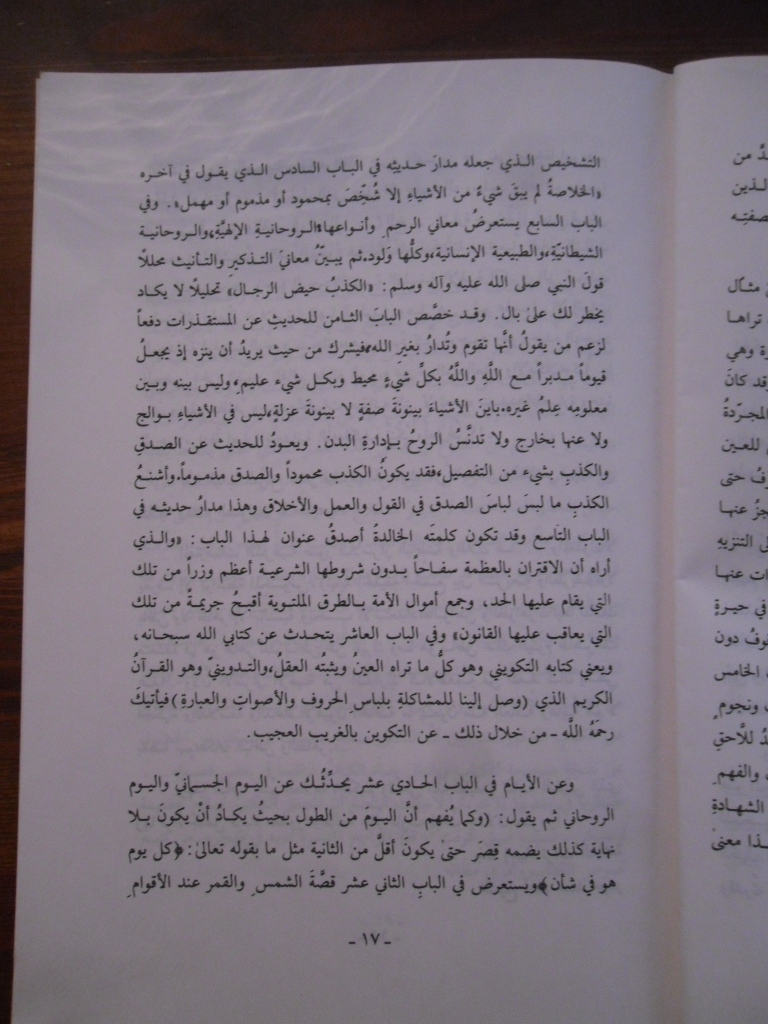 التشخيص الـذي جعله مدارَ حـديثِه في البـاب السادس الـذي يقول في آخـره
«الخلاصةُ لم يبقَ شيءٌ من الأشياءِ إلا شُخِّصَ بمحمود أو مذموم أو مهمل». وفي
الباب السابع يستعرضُ معاني الرحم وأنـواعها:الـروحانيـةِ الإلهيَّةِ،والـروحانيـة
الشيطانيّةِ،والطبيعية الإنسانية،وكلُّها وَلود.ثم يبـيّنُ معانيَ التـذكيرِ والتـأنيث محللًا
قولَ النبي صلى الله عليه وآله وسلم: «الكذبُ حيض الرجال» تحليلًا لا يكـاد
يخطر لك علىٰ بال. وقـد خصَّص البابَ الثـامن للحديثِ عن المستقـذرات دفعاً
لزعم من يقولُ أنَّها تقوم وتُدارُ بغيرِ الله،فيشرك من حيث يريدُ أن ينزه إذ يجعـلُ
قيوماً مـدبراً مـع اللَّهِ واللَّهُ بكلِّ شيءٍ محيط وبكـل شيء عليم،وليس بينه وبـين
معلومِه عِلمُ غيره.باينَ الأشياءَ بينونةَ صفةٍ لا بينونةَ عزلةٍ،ليس في الأشياءِ بـوالج
ولا عنها بخارج ولا تدنَّسُ الروحُ بـإدارةِ البدن. ويعـودُ للحديث عن الصـدقِ
والكذبِ بشيء من التفصيل،فقد يكونُ الكذب محموداً والصدق مذمـوماً.وأشنـعُ
الكذبِ ما لبسَ لباسَ الصدق في القول والعمل والأخلاق وهذا مدارُ حديثـه في
الباب التاسع وقد تكون كلمتَه الخالدةُ أصدقُ عنوان لهـذا الباب: «والـذي
أراه أن الاقتران بالعظمة سفـاحاً بـدون شروطها الشرعيـة أعظم وزراً من تلك
التي يقام عليها الحد، وجمع أموال الأمة بـالطرق الملتـوية أقبـحُ جريمـةً من تلك
التي يعاقب عليها القانون» وفي الباب العاشر يتحـدث عن كتابي الله سبحـانه،
ويعني كتابه التكويني وهو كلُّ ما تراه العينُ ويثبتُه العقلُ،والتـدوينيّ وهو القـرآنُ
الكريم الذي (وصل إلينا للمشاكلةِ بلباسِ الحروف والأصواتِ والعبارةِ)فيأتيكَ
رحمَهُ اللَّه ـ من خلال ذلك ـ عن التكوين بالغريب العجيب.
وعن الأيـام في الباب الحـادي عشر يحـدِّثُـك عن اليوم الجسـمانيّ واليوم
الروحاني ثم يقول: (وكما يُفهم أنَّ اليـومَ من الطول بحيثُ يكـادُ أنْ يكونَ بـلا
نهاية كذلك يضمه قِصَر حتىٰ يكونَ أقلَّ من الثانية مثل ما بقوله تعالىٰ: ﴿كل يوم
هو في شأن﴾ويستعرض في البابِ الثاني عشر قصَّةَ الشمسِ والقمر عند الأقوامِ
ـ ١٧ ـ
دَّ من
لـذين
صفتِـه
مثـال
تراهـا
رة وهي
قد كانَ
المجـرّدةُ
للعـين
فُ حتى
جزُ عنهـا
التنزيهِ
ات عنهـا
في حيـرةٍ
دون
الخامس
ونجوم
دُ للَّاحقِ
والفهم
الشهـادةِ
ـذا معنىٰ